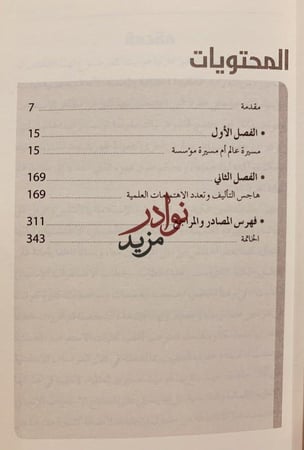 المحتويات
مقدمة 7
• الفصل الأول 15
مسيرة عالم أم مسيرة مؤسسة 15
• الفصل الثاني 169
هاجس التأليف وتعدد الاهتمامات العلمية 169
• فهرس المصادر والمراجع 311
الخاتمة 343
نوادر
مزيد